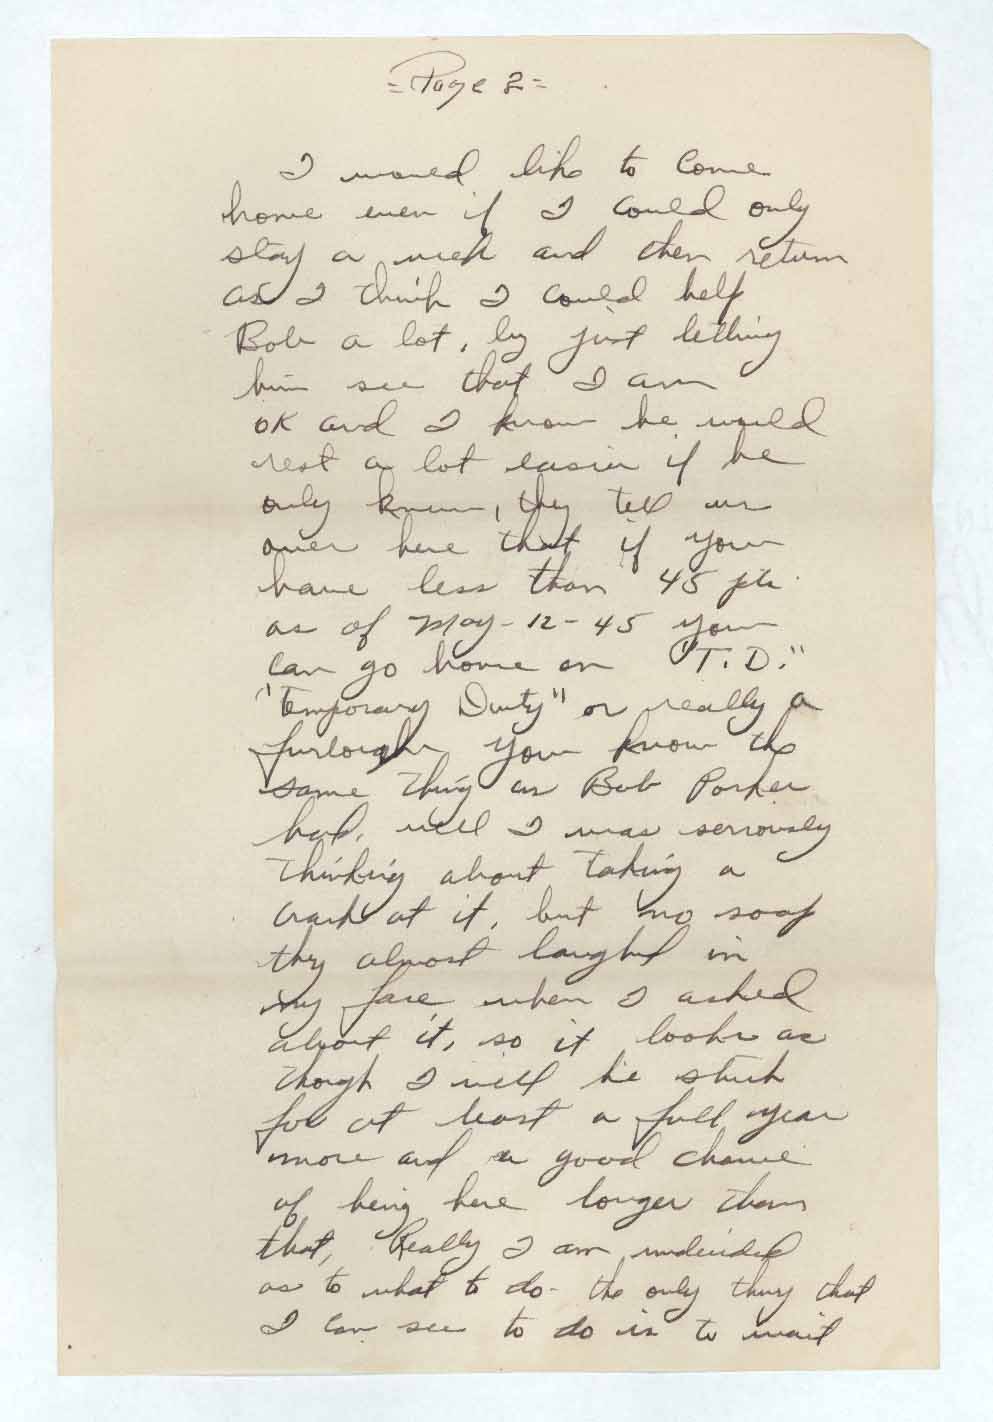 = Page 2 =
I would like to come
home even if I could only
stay a week and then return
as I think I could help
Bob a lot, by just letting
him see that I am
OK and I know he would
rest a lot easier if he
only knew, they tell us
over here that if you
have less than 45 pts.
as of May-12-45 you
can go home on "T.D."
"Temporary Duty" or really a
furlough, you know the
same thing as Bob Parker
had, well I was seriously
thinking about taking a
crack at it, but no soap
they almost laughed in
my face when I asked
about it, so it looks as
though I will be stuck
for at least a full year
more and a good chance
of being here longer than
that, Really I am undecided
as to what to do - the only thing that
I can see to do is to wait